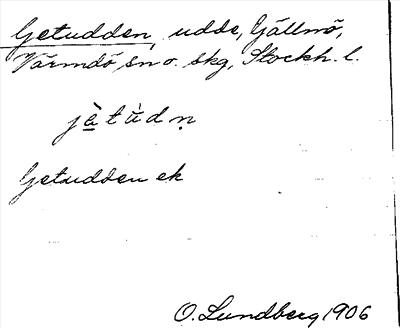 Getudden, udde, Gällnö,
Värmdö sn o. skg, Stockh. l.
jètùdṇ
Getudden ek
O. Lundberg 1906